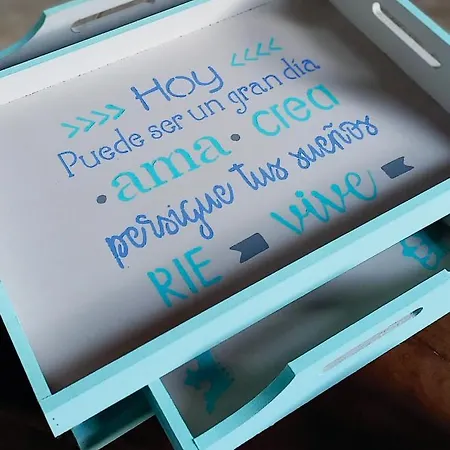 Hoy
Puede ser un gran día
ama • crea
persigue tus sueños
RIE vive